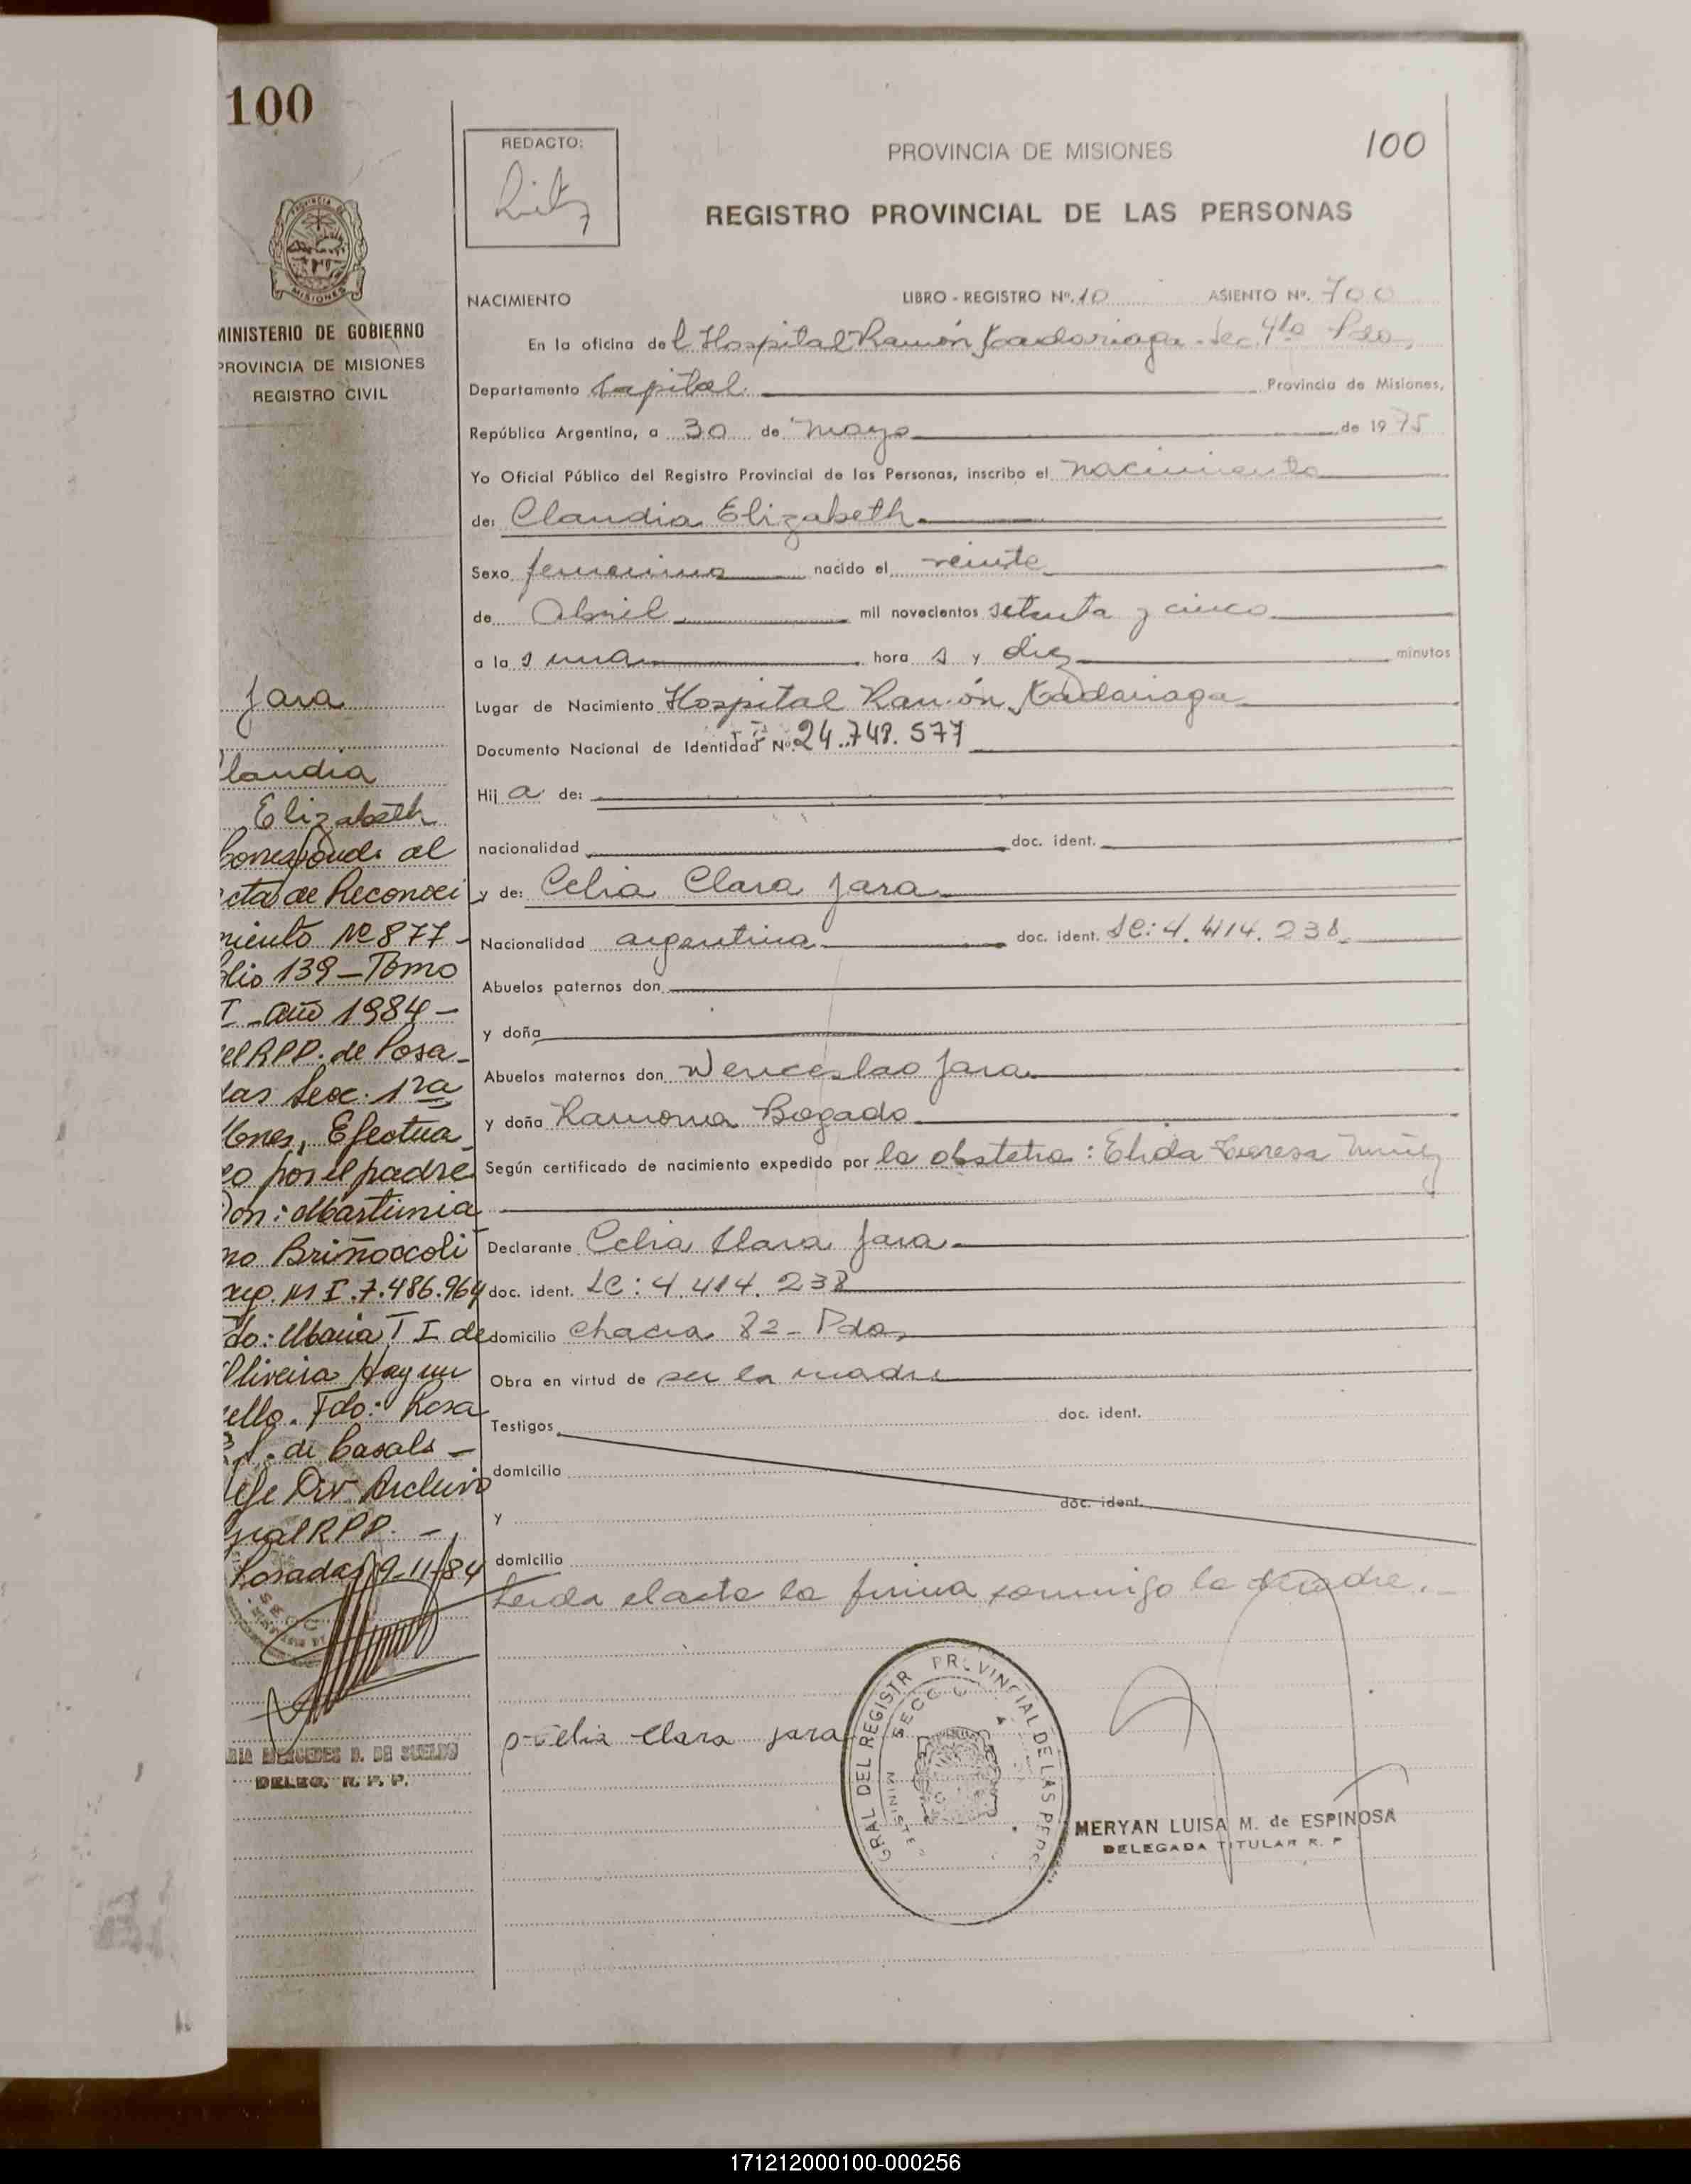 100
REDACTO:
PROVINCIA DE MISIONES
100
REGISTRO PROVINCIAL DE LAS PERSONAS
PROVINCIA DE
MISIONES
MINISTERIO DE GOBIERNO
PROVINCIA DE MISIONES
REGISTRO CIVIL
NACIMIENTO LIBRO - REGISTRO Nº. 10 ASIENTO Nº. 700
En la oficina del Hospital Ramón Madariaga - Sec. 4ta Pdas,
Departamento Capital. Provincia de Misiones,
República Argentina, a 30 de Mayo de 1975
Yo Oficial Público del Registro Provincial de las Personas, inscribo el nacimiento
de: Claudia Elizabeth
Sexo femenino nacido el veinte
de Abril mil novecientos setenta y cinco
a la s una hora s y diez minutos
Lugar de Nacimiento Hospital Ramón Madariaga
Documento Nacional de Identidad Nº 24.748.577
Hij a de:
nacionalidad doc. ident.
y de: Celia Clara Jara
Nacionalidad argentina doc. ident. LC: 4.414.238
Abuelos paternos don
y doña
Abuelos maternos don Wenceslao Jara
y doña Ramona Bogado
Según certificado de nacimiento expedido por la obstetra: Elida Teresa Nuñez
Declarante Celia Clara Jara
doc. ident. LC: 4.414.238
domicilio Chacra 82 - Pdas
Obra en virtud de ser la madre
Testigos doc. ident.
domicilio
y doc. ident.
domicilio
Leida el acta la firma conmigo la Madre.-
Celia Clara Jara
GRAL DEL REGISTR PROVINCIAL DE LAS PERS
SECC
MINISTE
MERYAN LUISA M. de ESPINOSA
DELEGADA TITULAR R. P
Jara
laudia
Elizabeth
Corresponde al
cta de Reconoci
miento Nº 877 -
olio 139 - Tomo
I - año 1984 -
el RPP. de Posa-
das Secc. 1ra
Mnes, Efectua
do por el padre
Don: Martinia
no Briñoccoli
arg. M I. 7.486.964
do: Maria T I de
Oliveira Hay un
sello. Fdo: Rosa
de Casals -
Jefe Div. Archivo
Gral RPP. -
Posadas 9-11-84
RIA MERCEDES D. DE SUELDO
DELEG. R. P. P.
171212000100-000256